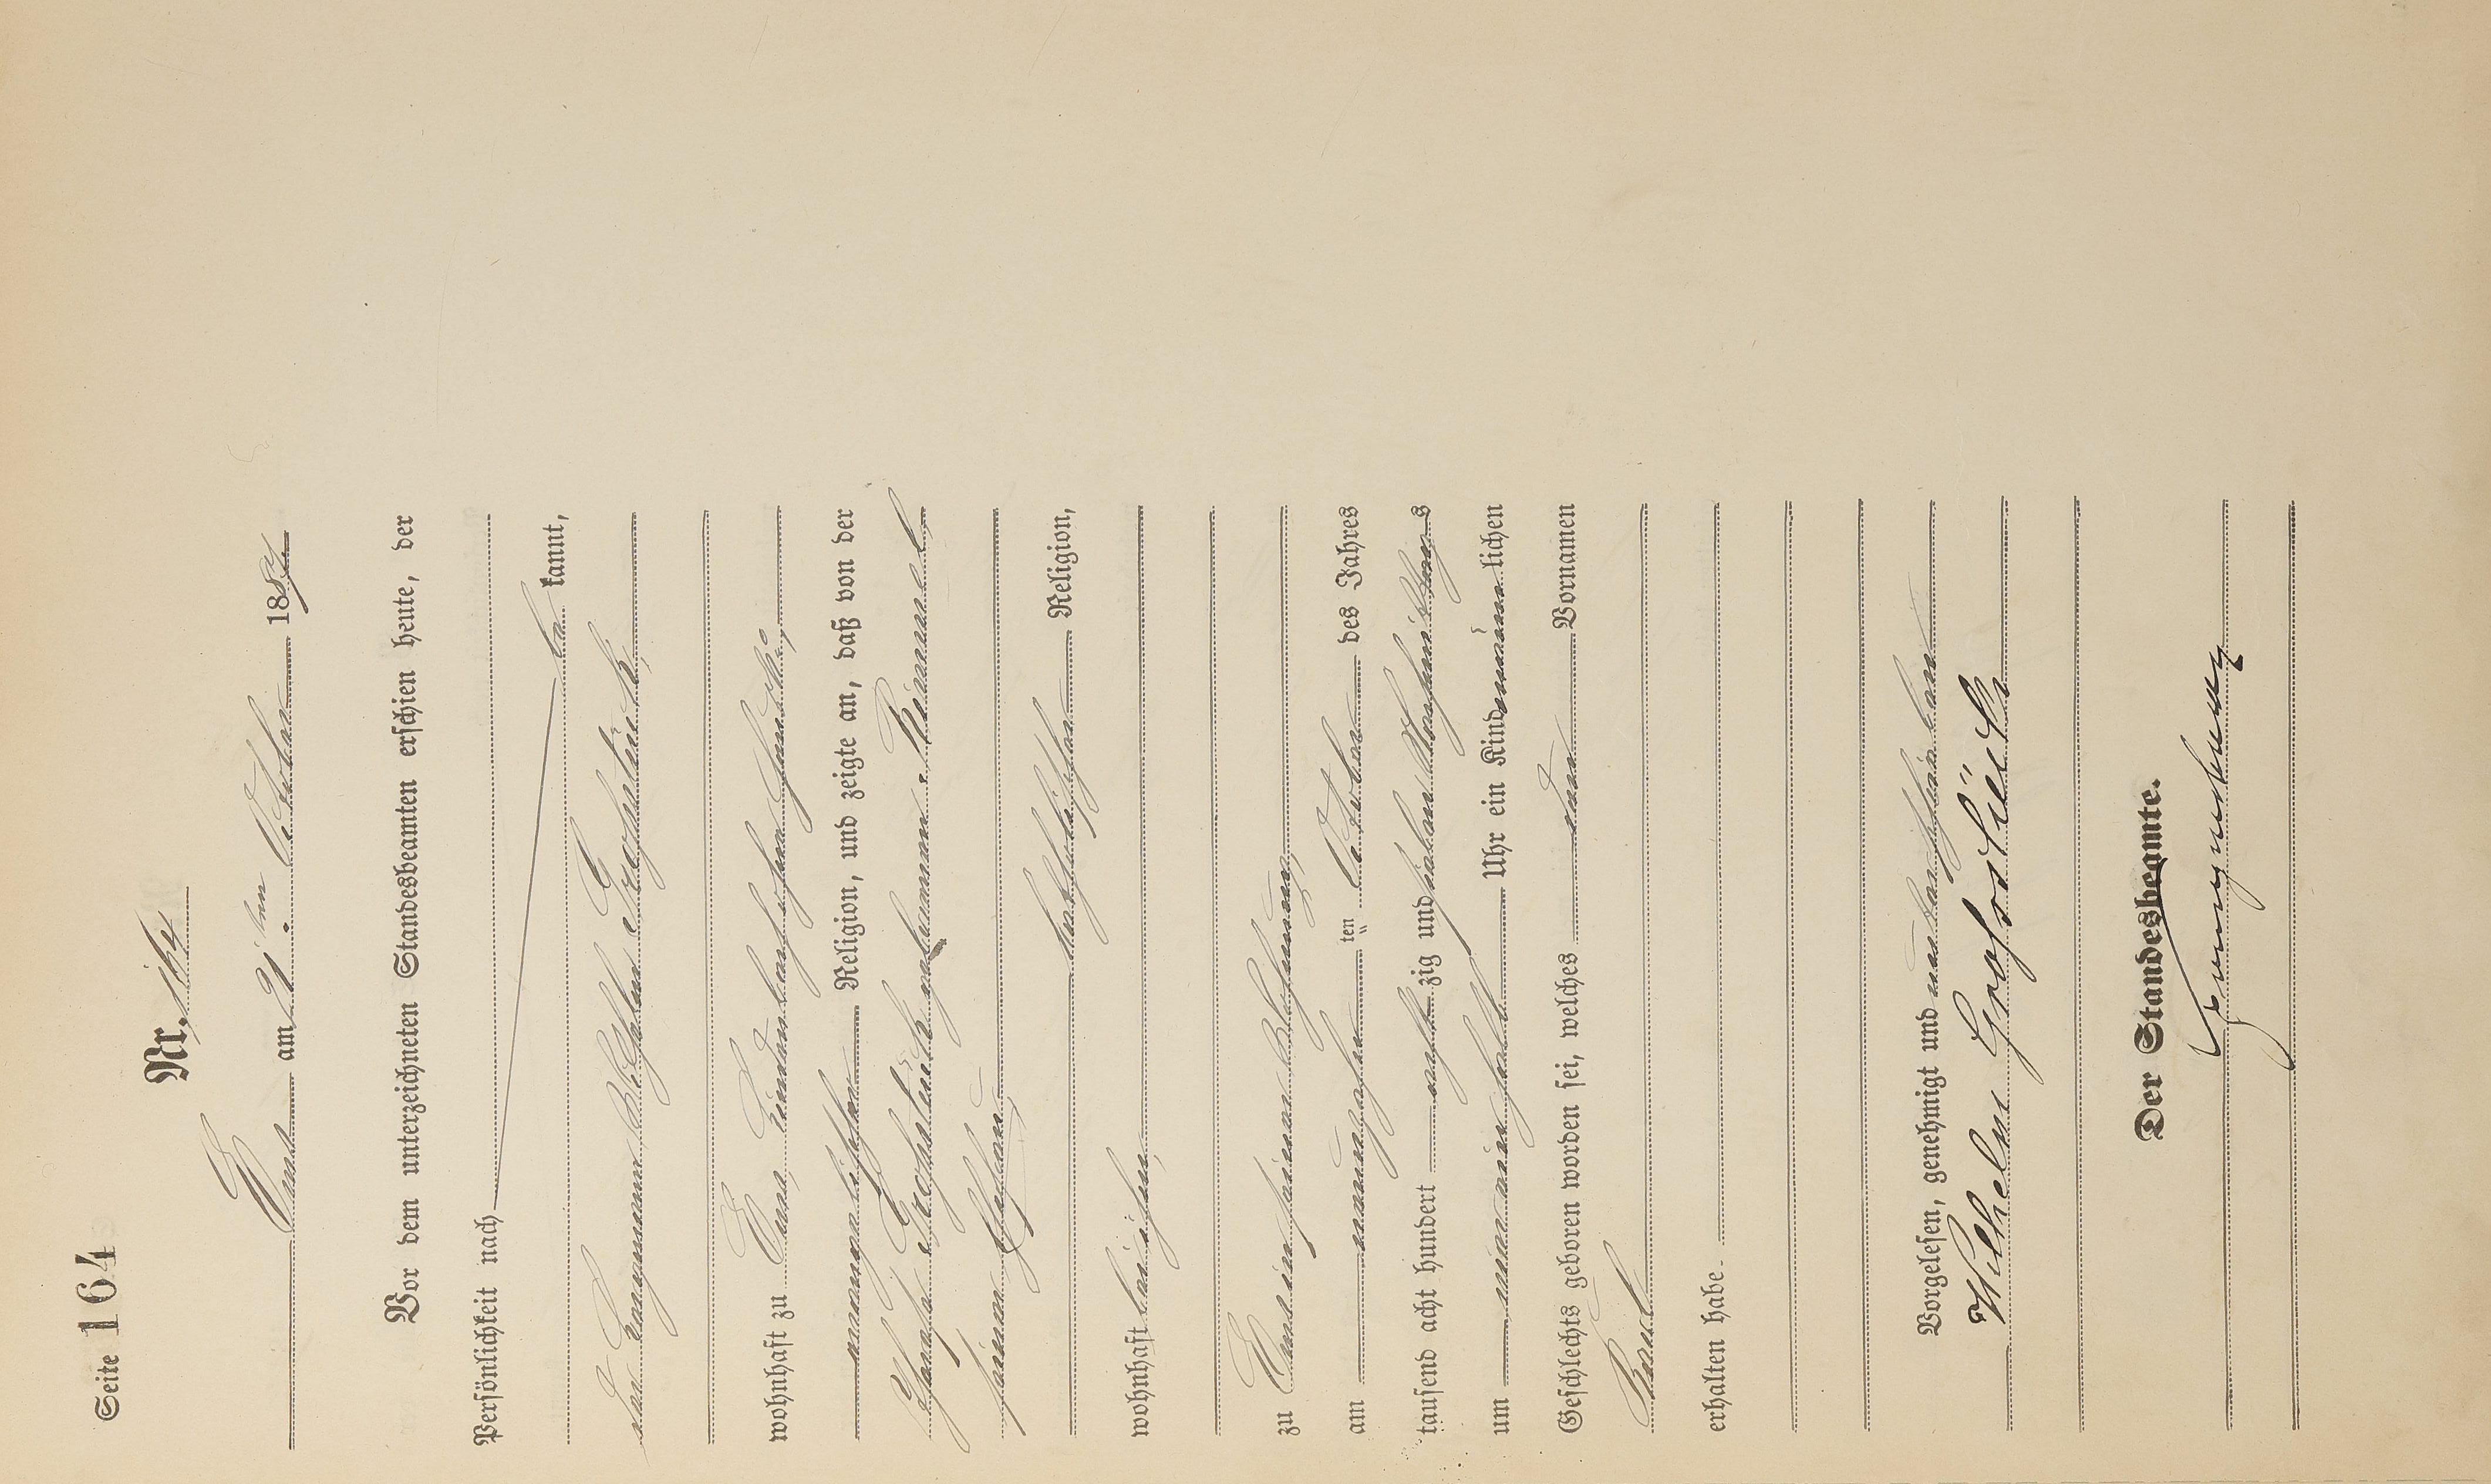 Seite 164
Nr. 164
Ems am 21. ten October 1887
Vor dem unterzeichneten Standesbeamten erschien heute, der
Persönlichkeit nach
be kannt,
der Bergmann Wilhelm Großstück,
wohnhaft zu Ems,
evangelischer Religion, und zeigte an, daß von der
Großstück geborenen Kimmel,
seiner Ehefrau,
katholischer Religion,
wohnhaft bei ihm,
zu Ems in seiner Wohnung,
am neunzehn ten October des Jahres
tausend acht hundert acht zig und sieben Nachmittags
um neun ein halb Uhr ein Kind männ lichen
Geschlechts geboren worden sei, welches den Vornamen
Karl
erhalten habe.
Vorgelesen, genehmigt und unterschrieben
Wilhelm Großstück
Der Standesbeamte.